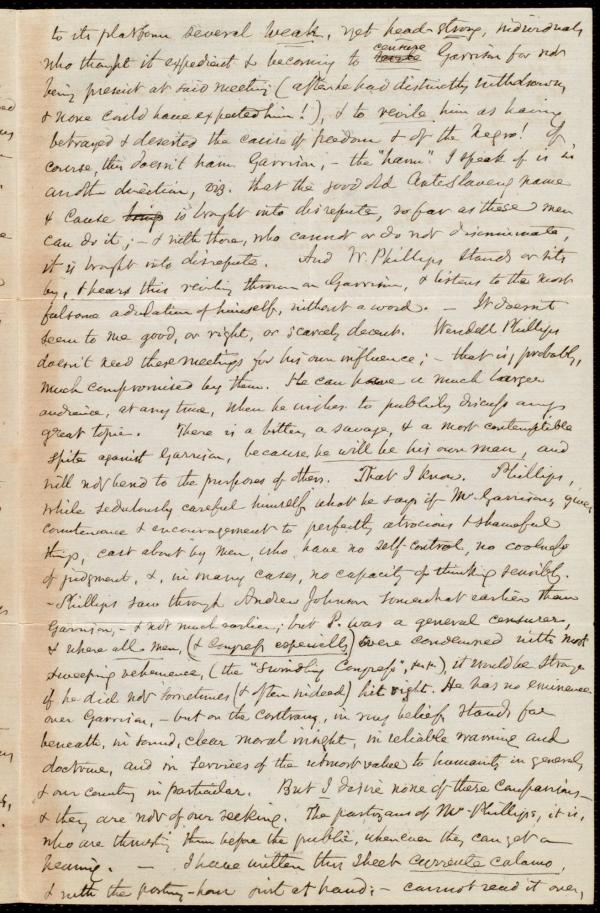 to its platform several weak, yet head-strong, individuals
who thought it expedient & becoming to censure Garrison for not
being present at said meeting (after he had distinctly withdrawn,
& none could have expected him!), & to revile him as having
betrayed & deserted the cause of freedom & of the Negro! Of
course, this doesn't harm Garrison; - the "harm" I speak of is in
another direction, viz. that the good old AntiSlavery name
& Cause is brought into disrepute, so far as these men
can do it; - & with those, who cannot or do not discriminate,
it is brought into disrepute. And W. Phillips stands or sits
by, & hears this reviling thrown on Garrison, & listens to the most
fulsome adulation of himself, without a word. - It doesn't
seem to me good, or right, or scarcely decent. Wendell Phillips
doesn't need these meetings for his own influence; - that is, probably,
much compromised by them. He can have a much larger
audience, at any time, when he wishes to publicly discuss any
great topic. There is a bitter, a savage, & a most contemptible
spite against Garrison, because he will be his own man, and
will not bend to the purposes of others. That I know. Phillips,
while sedulously careful himself what he says of Mr. Garrison, gives
countenance & encouragement to perfectly atrocious & shameful
things, cast about by men, who have no self-control, no coolness
of judgment, &, in many cases, no capacity of thinking sensibly.
- Phillips saw through Andrew Johnson somewhat earlier than
Garrison, - & not much earlier; but P. was a general censurer,
& where all men, (& Congress especially) were condemned with most
sweeping vehemence, (the "Swindling Congress", &c.), it would be strange
if he did not sometimes (& often indeed) hit right. He has no eminence
over Garrison, - but on the contrary, in my belief, stands far
beneath, in sound, clear moral insight, in reliable warning and
doctrine, and in services of the utmost value to humanity in general,
& our country in particular. But I desire none of these comparisons -
& they are not of our seeking. The partizans of Mr. Phillips, it is,
who are thrusting them before the public, whenever they can get a
hearing. - I have written this sheet currente calamo,
& with the posting-hour just at hand; - cannot read it over,